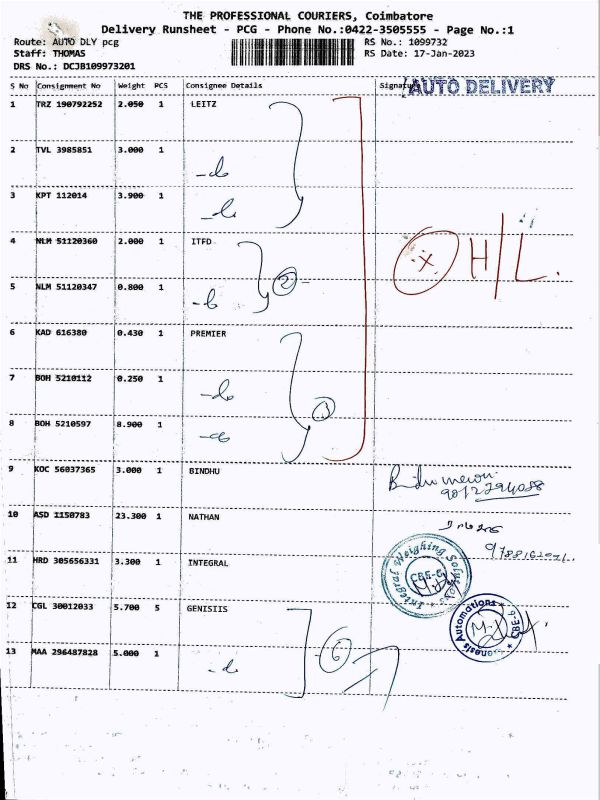 THE PROFESSIONAL COURIERS, Coimbatore
Delivery Runsheet - PCG - Phone No.:0422-3505555 - Page No.:1
Route: AUTO DLY pcg
RS No.: 1099732
Staff: THOMAS
RS Date: 17-Jan-2023
DRS No.: DCJB109973201
S No Consignment No Weight PCS Consignee Details Signature
AUTO DELIVERY
1 TRZ 190792252 2.050 1 LEITZ
2 TVL 3985851 3.000 1
-do
3 KPT 112014 3.900 1
-do
4 NLM 51120360 2.000 1 ITFD
X H/L.
2
5 NLM 51120347 0.800 1
-do
6 KAD 616380 0.430 1 PREMIER
7 BOH 5210112 0.250 1
-do
8 BOH 5210597 8.900 1
-do
9 KOC 56037365 3.000 1 BINDHU
Bindu menon
10 ASD 1150783 23.300 1 NATHAN
11 HRD 305656331 3.300 1 INTEGRAL
Integral Weighing Solutions
CBE-6
12 CGL 30012033 5.700 5 GENISIIS
Genesis Automations
CBE-6
13 MAA 296487828 5.000 1
-do
6